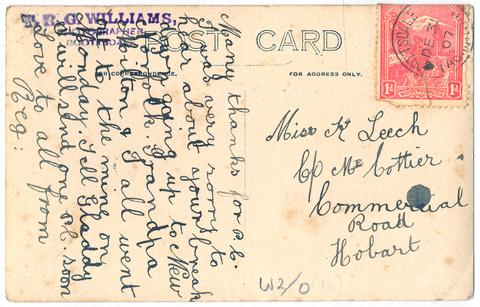 T. R. G. WILLIAMS,
PHOTOGRAPHER
SCOTTSDALE
POST CARD
FOR CORRESPONDENCE.
FOR ADDRESS ONLY.
Many thanks for P.C.
I was very sorry to
hear about your break
down going up to New
Norfolk. Grandpa
Milton & I all went
to the mine on
Monday. Tell Gladdy
I will send one P.C. soon
Love to all from
Reg:
Miss K Leech
C/o Mr Cottier
Commercial
Road
Hobart
SCOTTSDALE
DE 3
07
1d 1d
W2/0